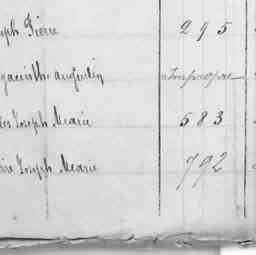 Joseph Pierre 295
hyacinthe augustin impropre
Joseph Marie 583
Joseph Marie 792